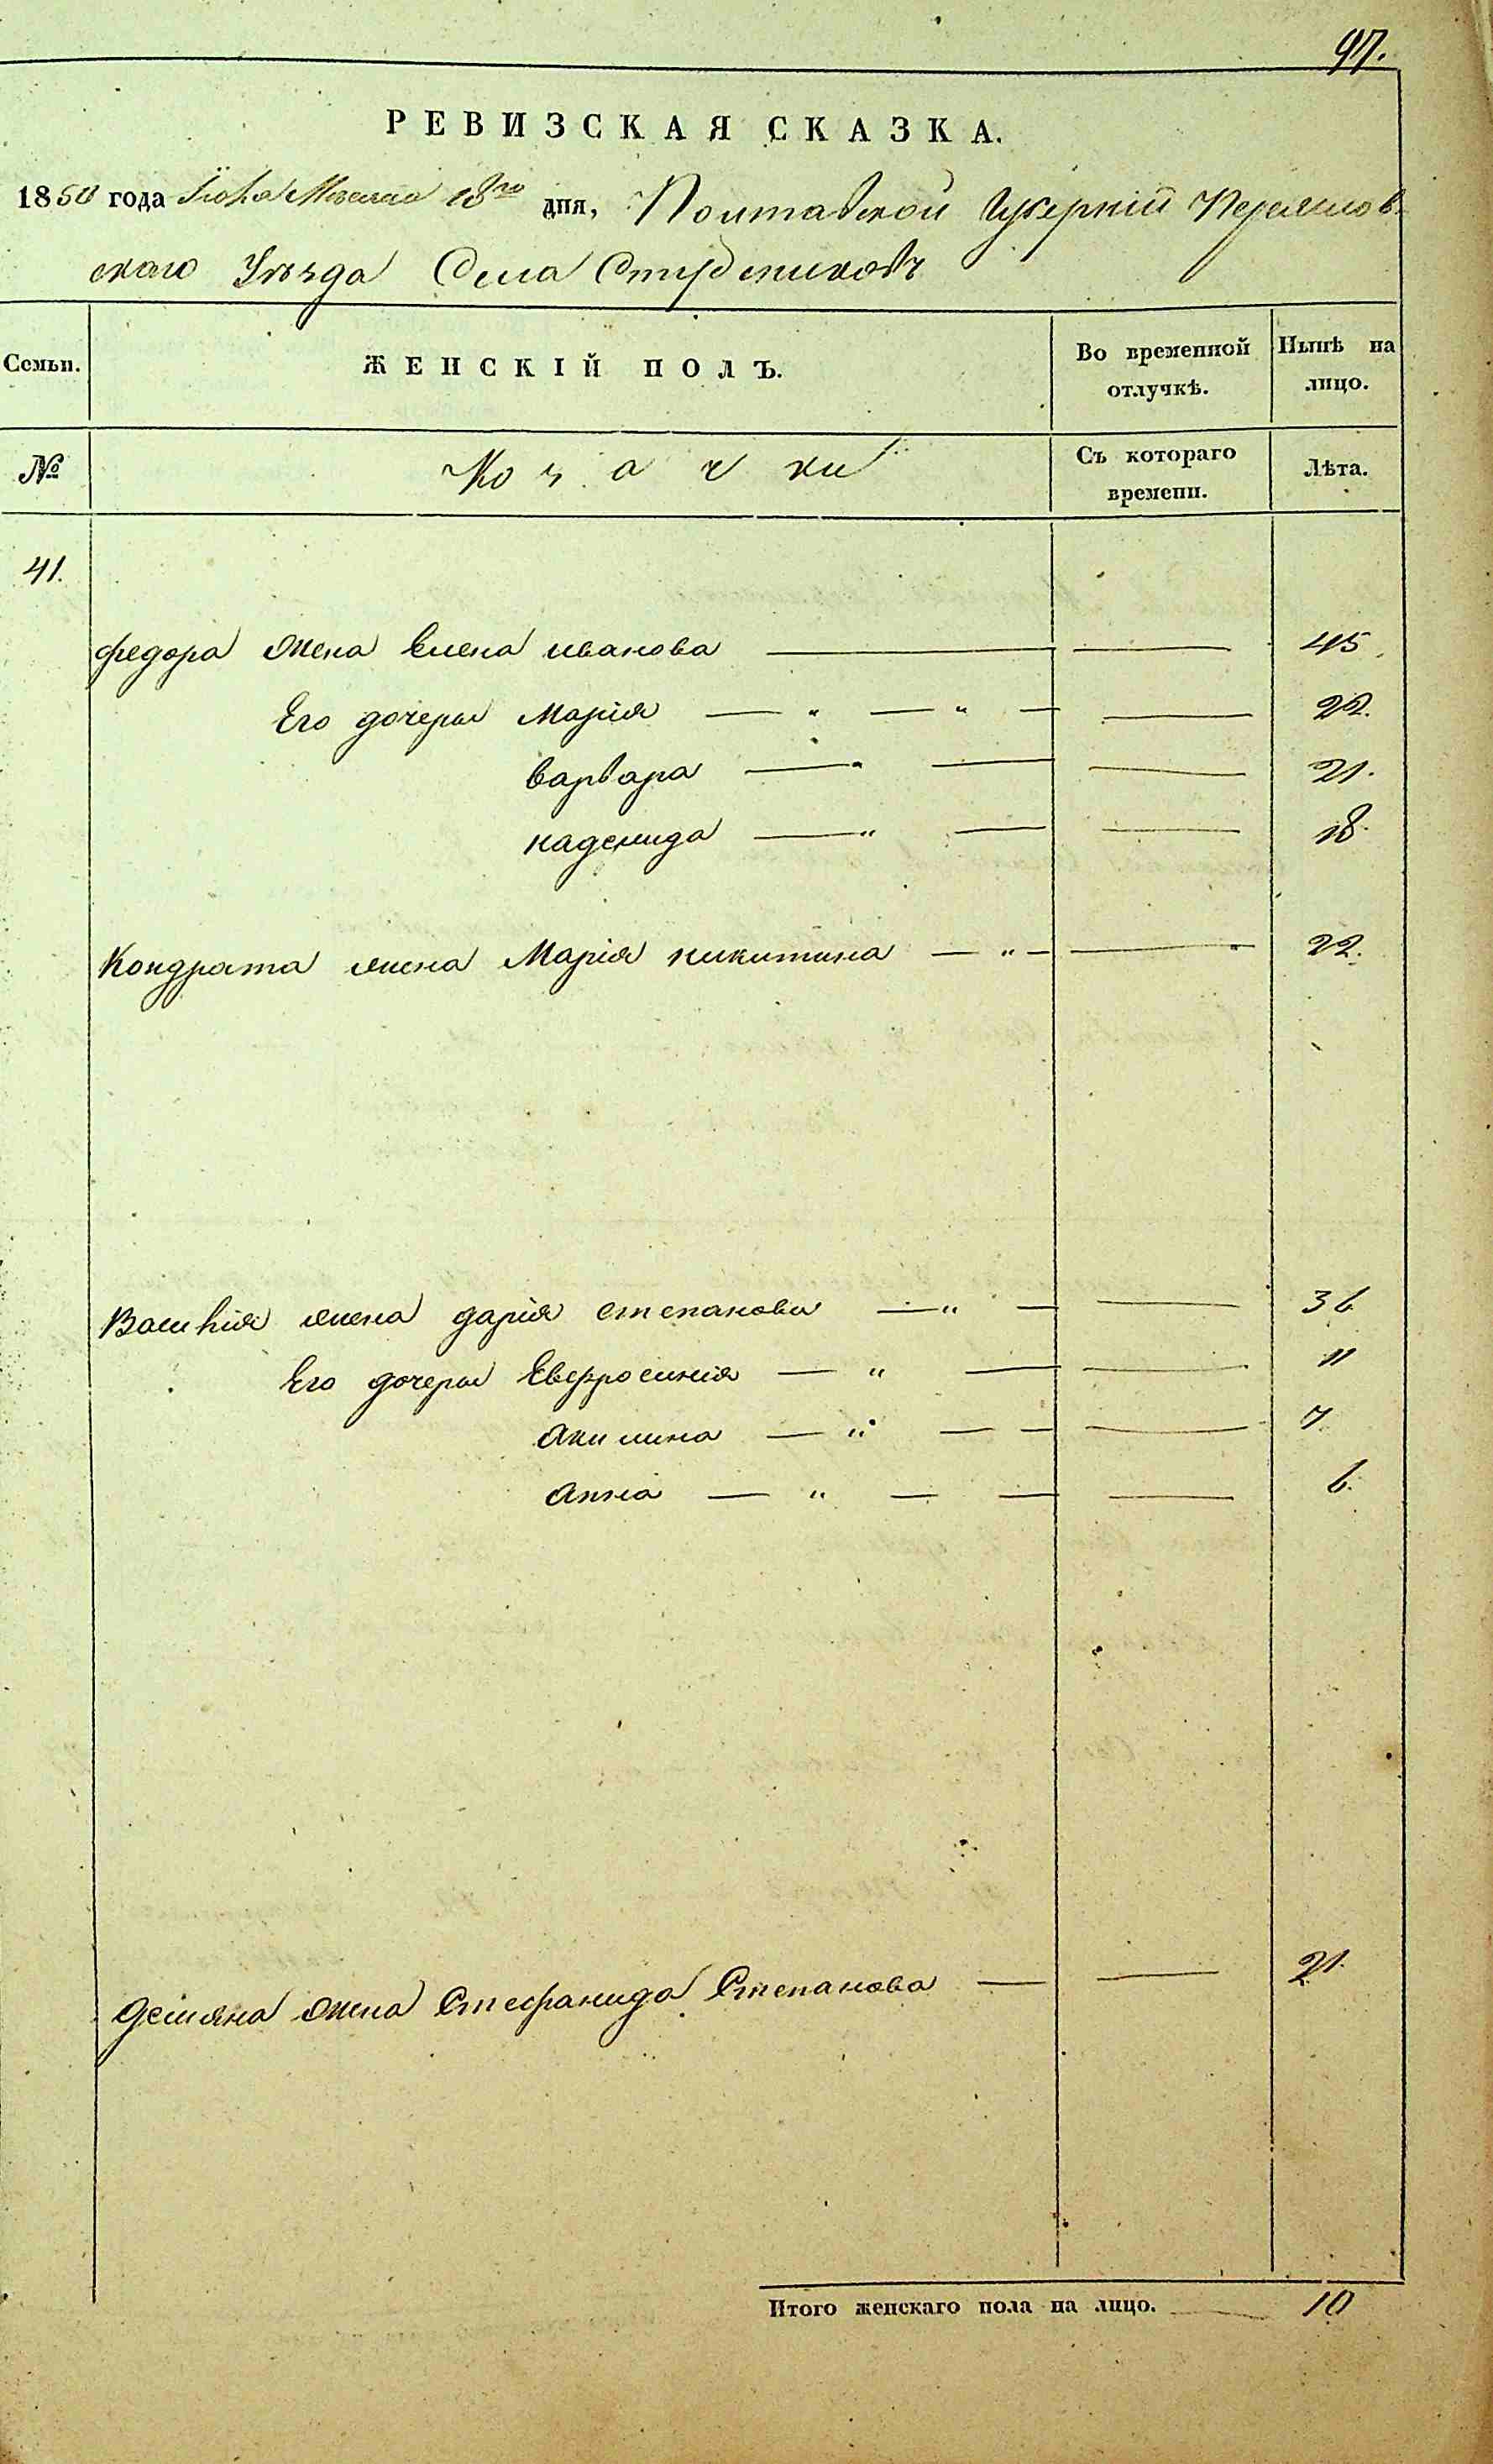 97.
РЕВИЗСКАЯ СКАЗКА.
1850 года Мѣсяца 18го дня, Полтавской Губерніи Переяслов-
скаго Уѣзда Села Студениковъ
Семьи. ЖЕНСКІЙ ПОЛЪ. Во временной отлучкѣ. Нынѣ на лицо.
№ Козачки Съ котораго времени. Лѣта.
41.
Федора жена Елена иванова — — 45.
Его дочеры Марія — " — " — — 22.
варвара — — — 21.
надежда — " — — 18.
Кондрата жена Марія никитина — " — — 22.
Василія жена дарія степанова — " — — 36
Его дочеры Евфросинія — " — — 11
Акилина — " — — — 7.
Анна — " — — — 6.
Демяна жена Стефанида Степанова — — 21.
Итого женскаго пола на лицо. — 10